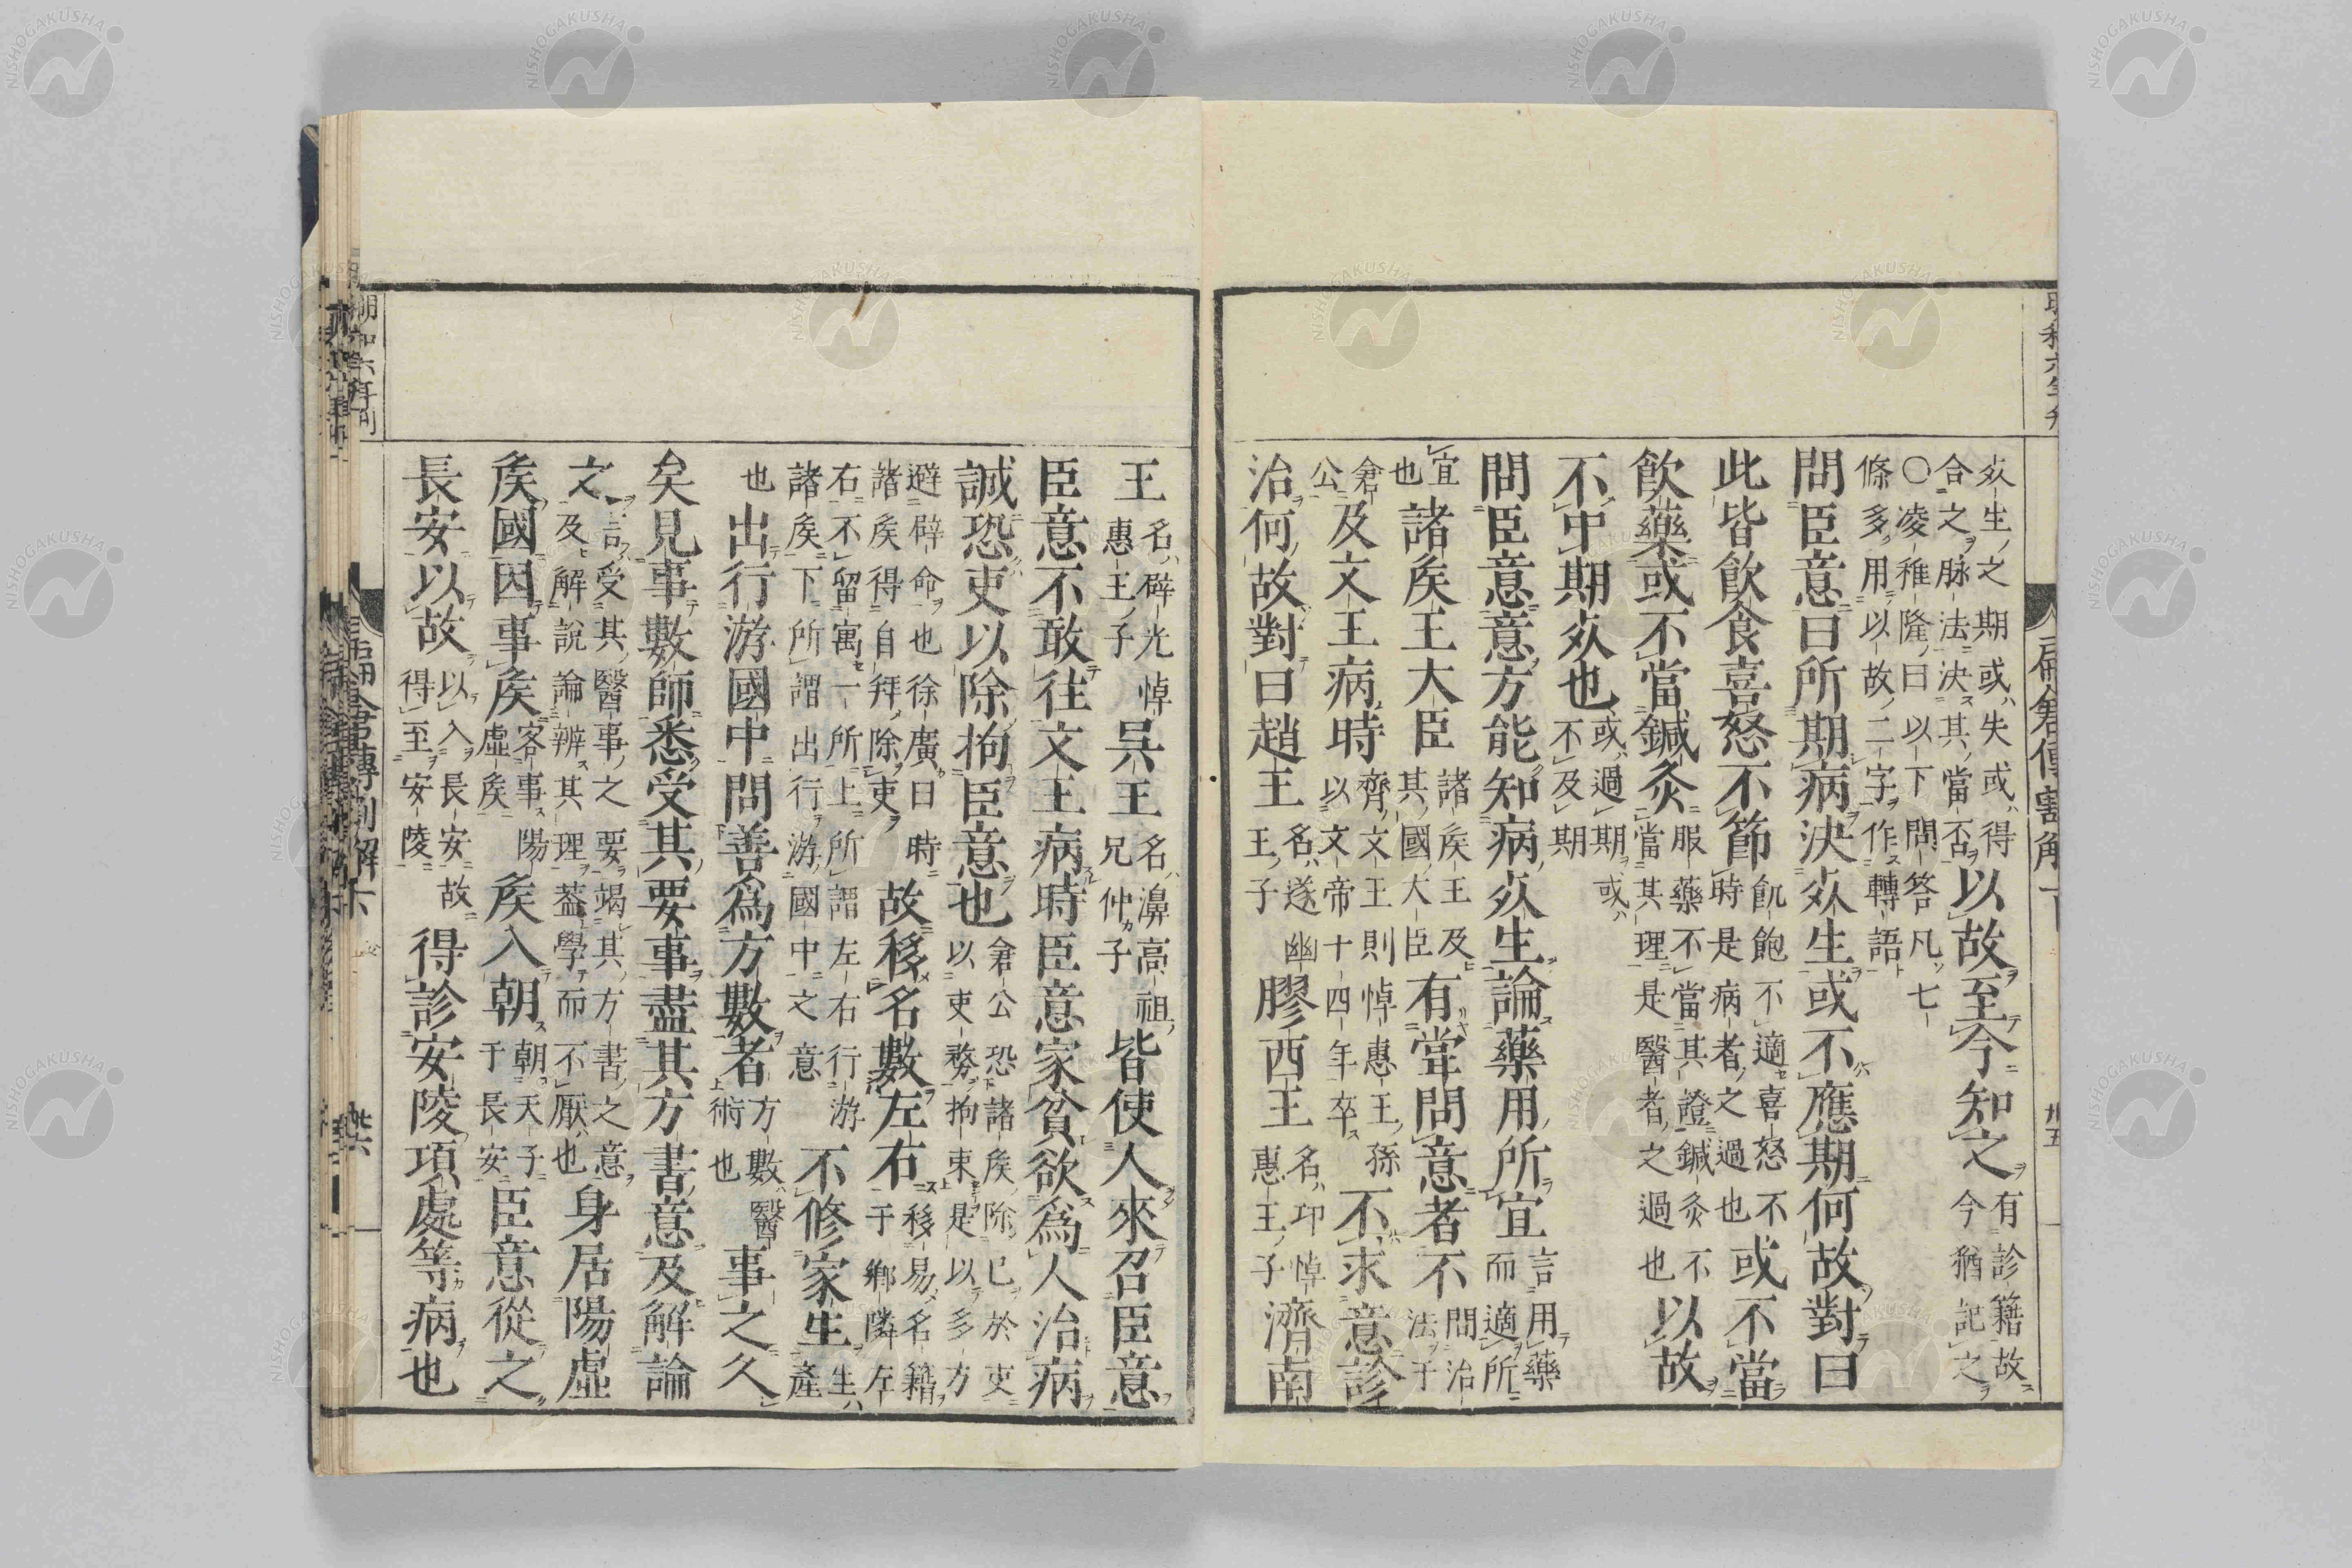 明和六年
扁倉傳割解下 卅五
死生之期或失或得合之脉法決其當否以故至今知之有診籍故今猶記之
〇凌稚隆曰以下問答凡七條多用以故二字作轉語
問臣意曰所期病決死生或不應期何故對曰
此皆飲食喜怒不節飢飽不適喜怒不時是病者之過也或不當
飲藥或不當鍼灸服藥不當其證鍼灸不當其理是醫者之過也以故
不中期死也或過期或不及期
問臣意意方能知病死生論藥用所宜言用藥而適所
宜也諸矦王大臣諸矦王及其國大臣有甞問意者不問治法于
倉公及文王病時齊文王則悼惠王孫以文帝十四年卒不求意診
治何故對曰趙王名遂幽王子膠西王名卬悼惠王子濟南
王名辟光悼惠王子吳王名濞高祖兄仲子皆使人來召臣意
臣意不敢往文王病時臣意家貧欲爲人治病
誠恐吏以除拘臣意也倉公恐諸矦除已於吏以吏務拘束是以多方
避辟命也徐廣曰時諸矦得自拜除吏故移名數左右移易名籍于鄉隣左
右不留寓一所上所謂左右行游諸矦下所謂出行游國中文意不修家生生產
也出行游國中問善爲方數者方數醫術也事之久
矣見事數師悉受其要事盡其方書意及解論
之言受其醫事之要竭其方書之意及解說論辨其理葢學而不厭也身居陽虛
矦國因事矦客事陽虛矦矦入朝朝天子于長安臣意從之
長安以故以入長安故得至安陵得診安陵項處等病也
明和六年刊
扁倉傳割解下
NISHOGAKUSHA